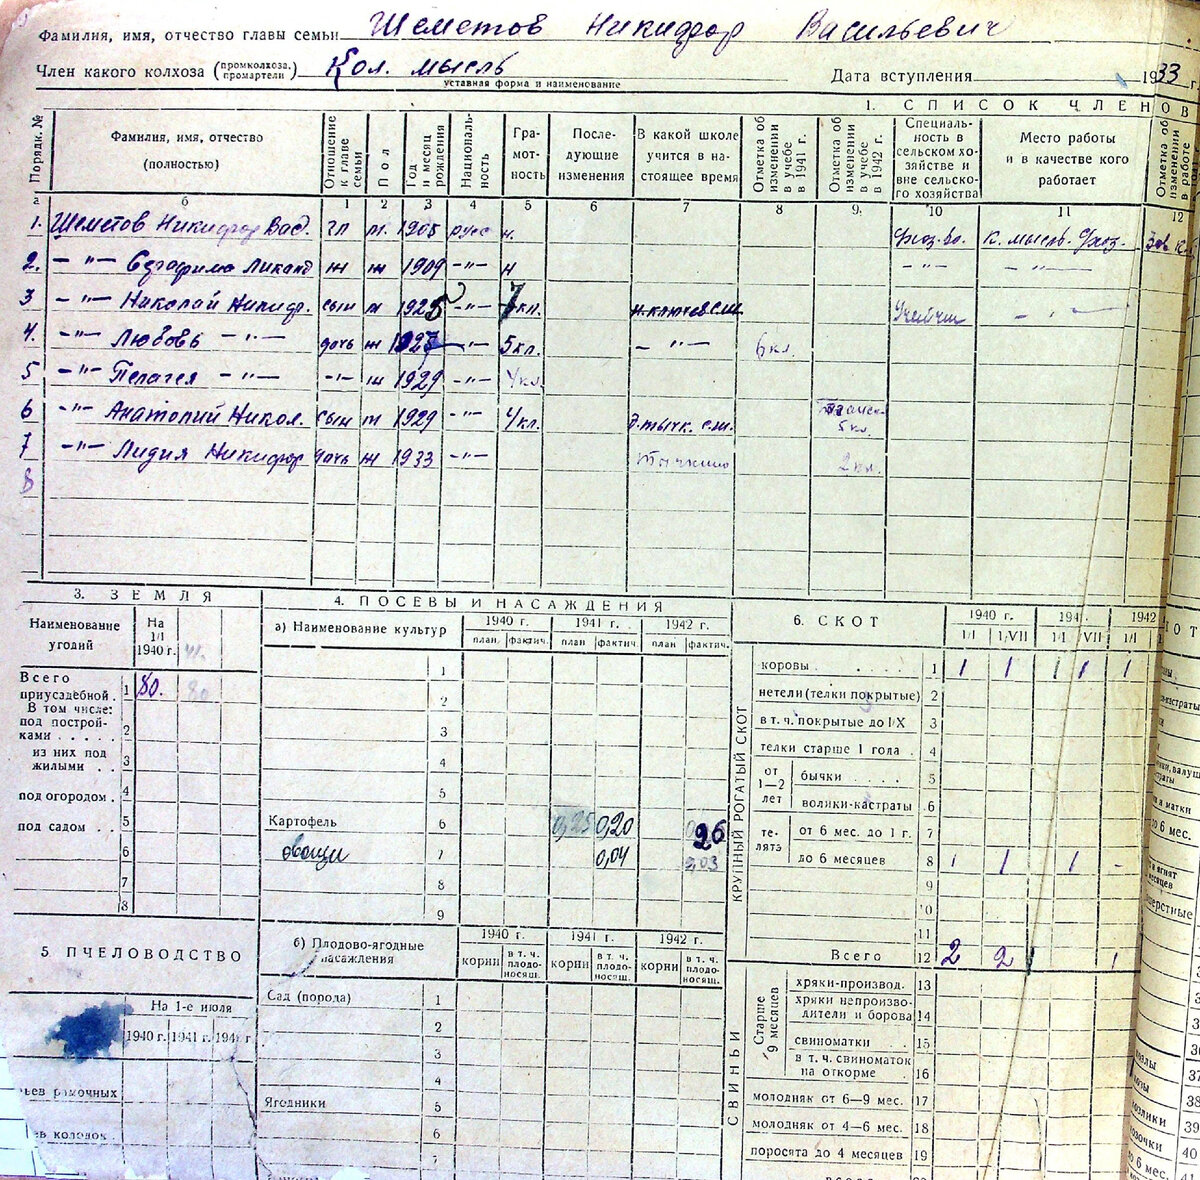 Фамилия, имя, отчество главы семьи Шеметов Никифор Васильевич
Член какого колхоза (промколхоза, промартели) Кол. мысль
уставная форма и наименование
Дата вступления 1933 г.
1. СПИСОК ЧЛЕНОВ
Порядк. №
Фамилия, имя, отчество (полностью)
Отношение к главе семьи
Пол
Год и месяц рождения
Националь-ность
Гра-мот-ность
После-дующие изменения
В какой школе учится в на-стоящее время
Отметка об изменении в учебе в 1941 г.
Отметка об изменении в учебе в 1942 г.
Специаль-ность в сельском хо-зяйстве и вне сельско-го хозяйства
Место работы и в качестве кого работает
Отметка об изменении в работе
а б 1 2 3 4 5 6 7 8 9. 10 11 12
1. Шеметов Никифор Вас. гл м. 1905 русс н. к. мысль
2. -"- Серафима ж ж 1909 -"- н -"- -"-
3 -"- Николай Никифр. сын м 1925 -"- 7 кл. н.ключев с.ш.
4. -"- Любовь -"- дочь ж 1927 -"- 5 кл. -"- 6 кл.
5 -"- Пелагея -"- -"- ж 1929 -"- 4 кл
6 -"- Анатолий Никол. сын м 1929 -"- 4 кл. 5 кл.
7 -"- Лидия Никифор дочь ж 1933 -"- Тычкино 2 кл.
8
3. ЗЕМЛЯ
Наименование угодий
На 1/I 1940 г. 41.
Всего приусадебной 1 80. 80
В том числе:
под построй-ками 2
из них под жилыми 3
под огородом 4
под садом 5
6
7
8
4. ПОСЕВЫ И НАСАЖДЕНИЯ
а) Наименование культур
1940 г. 1941 г. 1942 г.
план фактич. план фактич. план фактич.
1
2
3
4
5
Картофель 6 0,25 0,20 26
овощи 7 0,04 0,03
8
9
б) Плодово-ягодные насаждения
1940 г. 1941 г. 1942 г.
корни в т. ч. плодо-носящ. корни в т. ч. плодо-носящ. корни в т. ч. плодо-носящ.
Сад (порода) 1
2
3
4
Ягодники 5
6
7
5 ПЧЕЛОВОДСТВО
На 1-е июля
1940 г. 1941 г. 194 г
рамочных
колодок
6. СКОТ
1940 г. 194 1942
1/I 1/VII 1/I VII 1/I
КРУПНЫЙ РОГАТЫЙ СКОТ
коровы 1 1 1 1 1 1
нетели (телки покрытые) 2
в т. ч. покрытые до 1/X 3
телки старше 1 года 4
от 1—2 лет
бычки 5
волики-кастраты 6
те-лята
от 6 мес. до 1 г. 7
до 6 месяцев 8 1 1 1 -
9
10
11
Всего 12 2 2 1
СВИНЬИ
Старше 9 месяцев
хряки-производ. 13
хряки непроизво-дители и борова 14
свиноматки 15
в т. ч. свиноматок на откорме 16
молодняк от 6—9 мес. 17
молодняк от 4—6 мес. 18
поросята до 4 месяцев 19
37
38
39
40
41